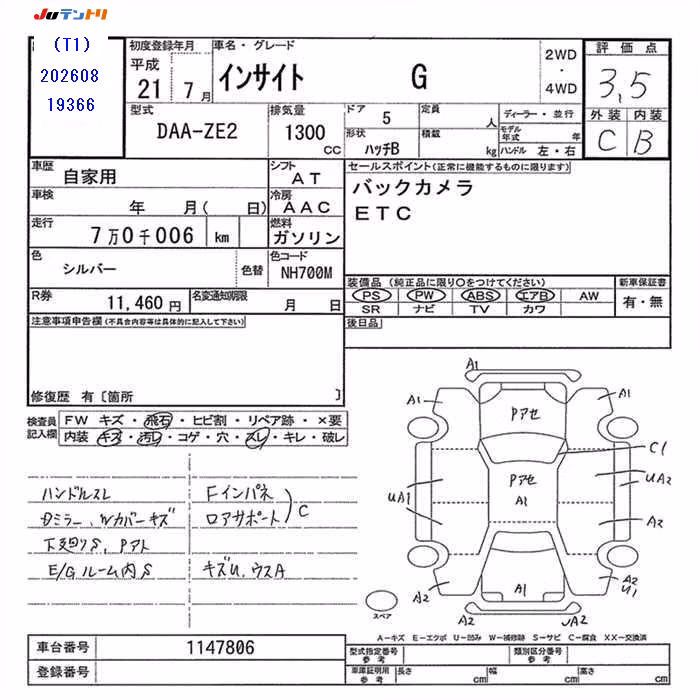 JUテントリ
(T1)
202608
19366
初度登録年月
平成
21 7月
車名・グレード
インサイト G
2WD
・
4WD
評価点
3.5
外装 内装
C B
型式
DAA-ZE2
排気量
1300
CC
ドア 5
形状 ハッチB
定員 人
積載 kg
ディーラー・並行
モデル年式 年
ハンドル 左・右
車歴 自家用
シフト AT
車検 年 月( 日)
冷房 AAC
走行 7万0千006 km
燃料 ガソリン
色 シルバー 色替
色コード NH700M
R券 11,460円
名変通知期限 月 日
セールスポイント(正常に機能するものに限ります)
バックカメラ
ETC
装備品(純正品に限り○をつけてください)
PS PW ABS エアB AW
SR ナビ TV カワ
新車保証書
有・無
後日品
注意事項申告欄(不具合内容等は具体的に記入して下さい)
修復歴 有〔箇所 〕
検査員記入欄
FW キズ・飛石・ヒビ割・リペア跡・×要
内装・キズ・汚レ・コゲ・穴・スレ・キレ・破レ
ハンドルスレ
Dミラー、Wカバーキズ
下廻りS、Pアト
E/Gルーム内S
Fインパネ
ロアサポート
C
キズU、ウスA
A1
A1
A1
Pアセ
C1
Pアセ
A1
UA1
UA2
A2
A2
A1
A2
U1
A2
UA2
スペア
A−キズ E−エクボ U−凹み W−補修跡 S−サビ C−腐食 XX−交換済
車台番号 1147806
登録番号
型式指定番号 参考
類別区分番号 参考
車庫証明用 参考
長さ cm
幅 cm
高さ cm